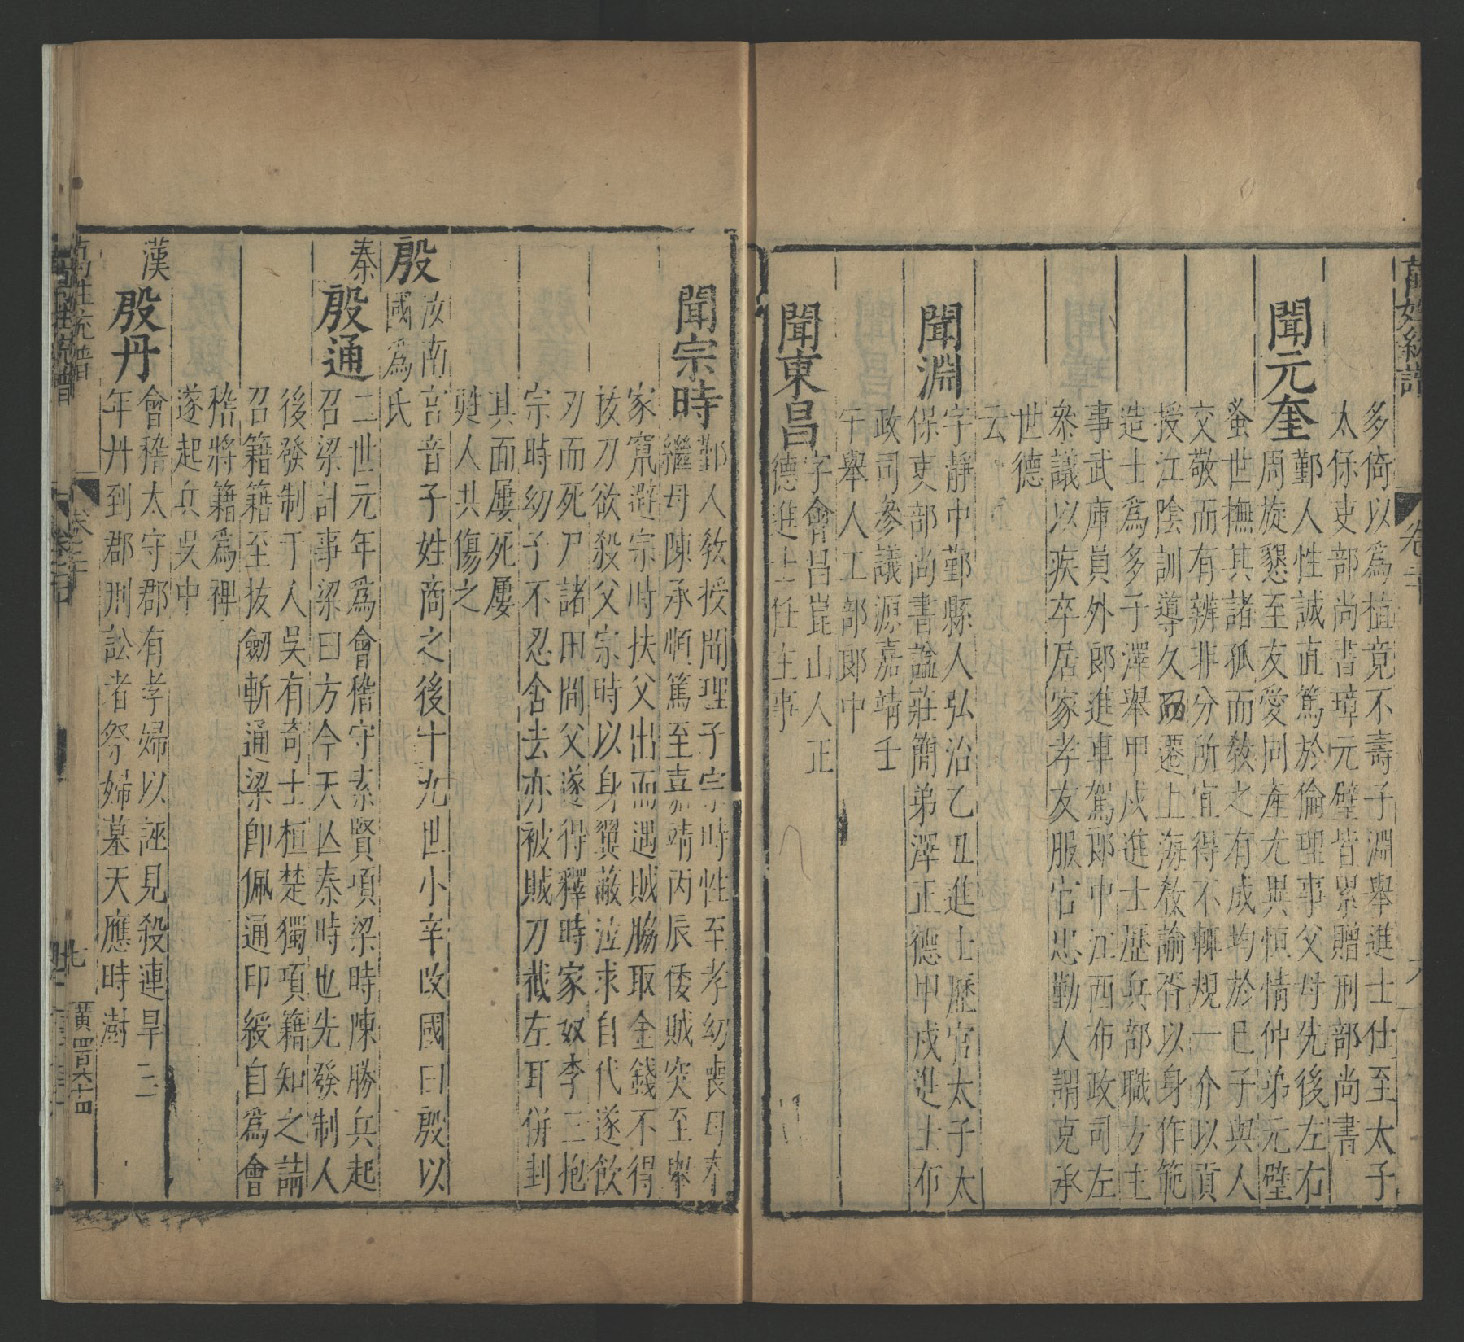 萬姓統譜
卷二十
多倚以爲植竟不壽子淵舉進士仕至太子
太保吏部尚書璋元璧皆累贈刑部尚書
聞元奎
鄞人性誠直篤於倫理事父母先後左右
周旋懇至友愛同產尤異恒情仲弟元璧
蚤世撫其諸孤而教之有成均於已子與人
交敬而有辨非分所宜得不輙規一介以貢
授江陰訓導久而遷上海教諭胥以身作範
造士爲多子澤舉甲戌進士歷兵部職方主
事武庫員外郎進車駕郎中江西布政司左
叅議以疾卒居家孝友服官忠勤人謂克承
世德
云
聞淵
字靜中鄞縣人弘治乙丑進士歷官太子太
保吏部尚書謚莊簡弟澤正德甲戌進士布
政司參議源嘉靖壬
午舉人工部郎中
聞東昌
字會吕崑山人正
德進士任主事
聞宗時
鄞人教授聞理子宗時性至孝幼喪母奉
繼母陳承順篤至嘉靖丙辰倭賊突至舉
家竄避宗時扶父出而遇賊脇取金錢不得
抜刀欲殺父宗時以身翼蔽泣求自代遂飲
刃而死尸諸田間父遂得釋時家奴李三抱
宗時幼子不忍舍去亦被賊刀截左耳併刲
其面屢死屢
甦人共傷之
殷
汝南
國爲
宫音子姓商之後十九世小辛改國曰殷以
氏
秦
殷通
二世元年爲會稽守素賢項梁時陳勝兵起
召梁計事梁曰方今天亾秦時也先發制人
後發制于人吳有奇士桓楚獨項籍知之請
召籍籍至抜劒斬通梁卽佩通印綬自爲會
稽將籍爲裨
遂起兵吳中
漢
殷丹
會稽太守郡有孝婦以誣見殺連旱三
年丹到郡刑訟者祭婦墓天應時澍
萬姓統譜
卷二十
九